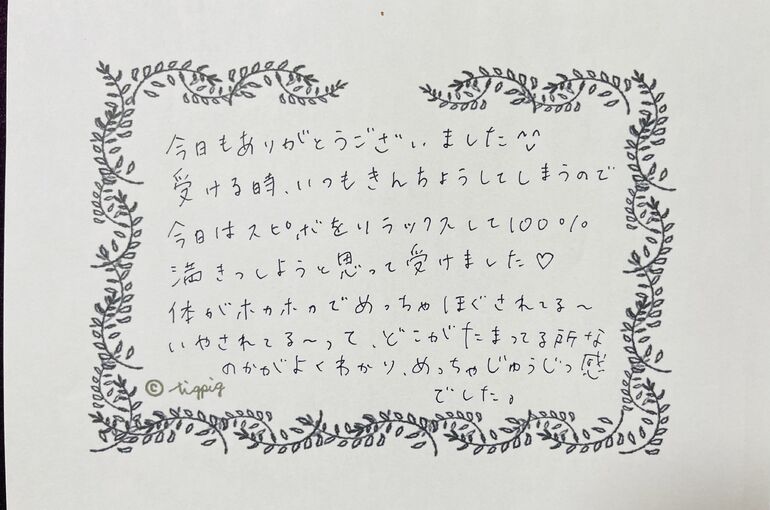 今日もありがとうございました^^
受ける時、いつもきんちょうしてしまうので
今日はスピボをリラックスして100%
満きつしようと思って受けました♡
体がホカホカでめっちゃほぐされてる〜
いやされてる〜って、どこがたまってる所な
のかがよくわかり、めっちゃじゅうじつ感
でした。
© tigpig